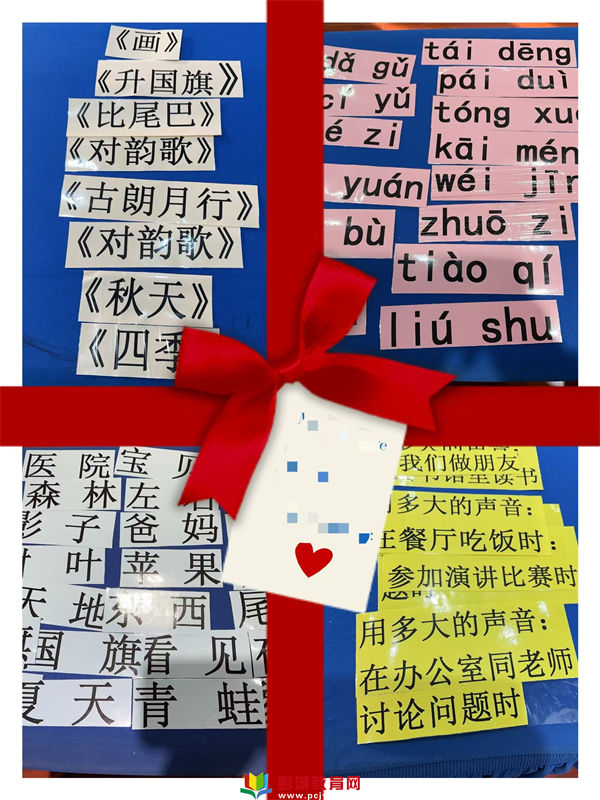 《画》
《升国旗》
《比尾巴》
《对韵歌》
《古朗月行》
《对韵歌》
《秋天》
《四季
dǎ gǔ
cí yǔ
zi
yuán
bù
tái dēng
pái duì
tóng xué
kāi mén
wéi jīn
zhuō zi
tiào qí
liú shu
医 院 宝 贝
森 林 左 右
影 子 爸 妈
叶 苹 果
天 地 东 西 尾
国 旗 看 见
夏 天 青 蛙
我们做朋友
馆里读书
用多大的声音：
在餐厅吃饭时：
参加演讲比赛时
用多大的声音：
在办公室同老师
讨论问题时
彭城教育网